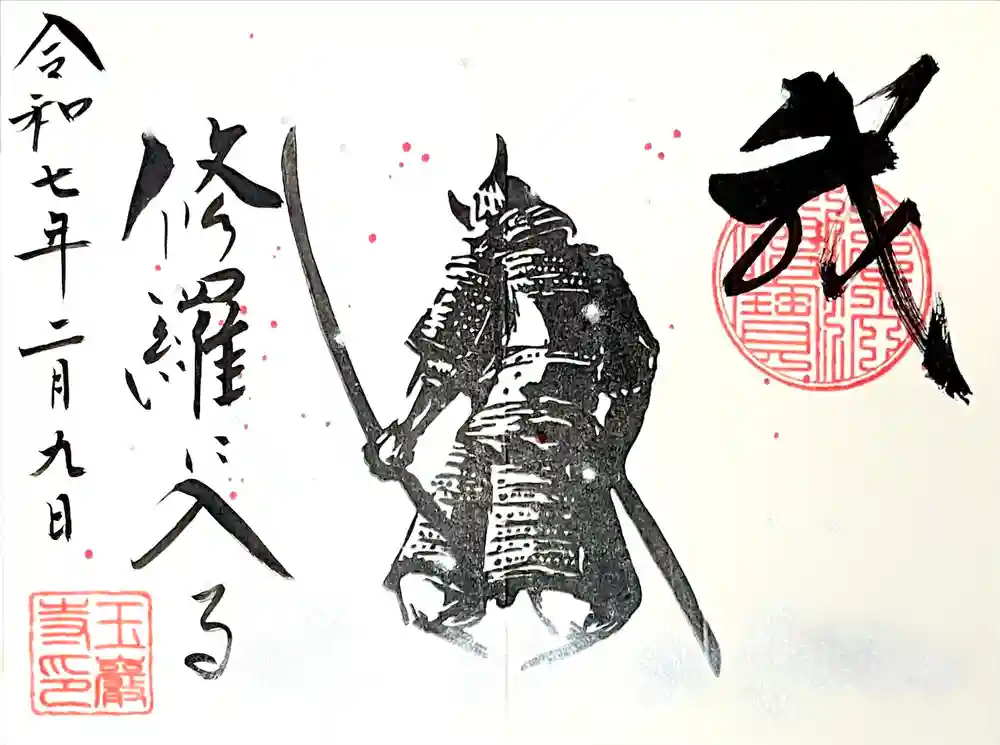 武
修羅に入る
令和七年二月九日
玉巖
寺印